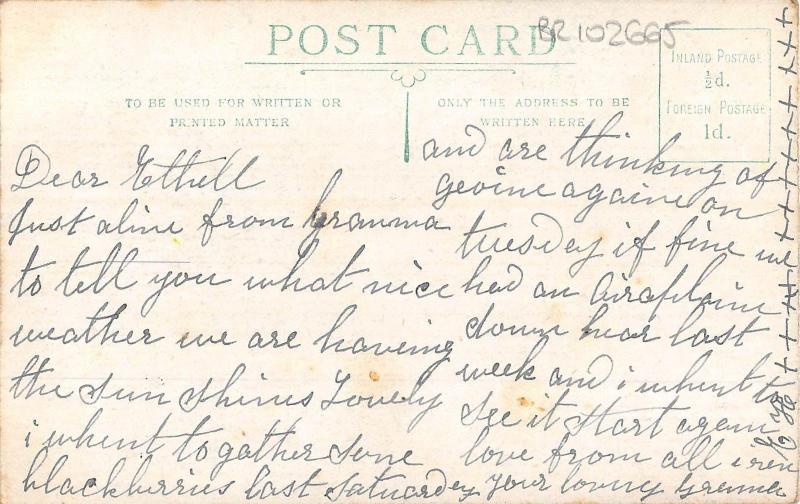 POST CARD
BR102665
INLAND POSTAGE
½d.
FOREIGN POSTAGE
1d.
TO BE USED FOR WRITTEN OR
PRINTED MATTER
ONLY THE ADDRESS TO BE
WRITTEN HERE
Dear Ethell
Just a line from Granma
to tell you what nice
weather we are having
the sun shines Lovely
i whent to gather some
blackberries last saturday
and are thinking of
geoine againe on
tuesday if fine we
had an airaplain
down hear last
week and i whent to
see it start again
love from all
your loving Granma
+ + + + + + + + + + + + + +